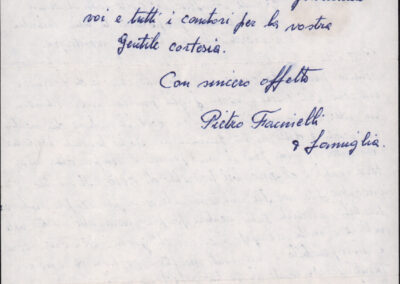 voi e tutti i cantori per la vostra
Gentile cortesia.
Con sincero affetto
Pietro Facinelli
& famiglia.